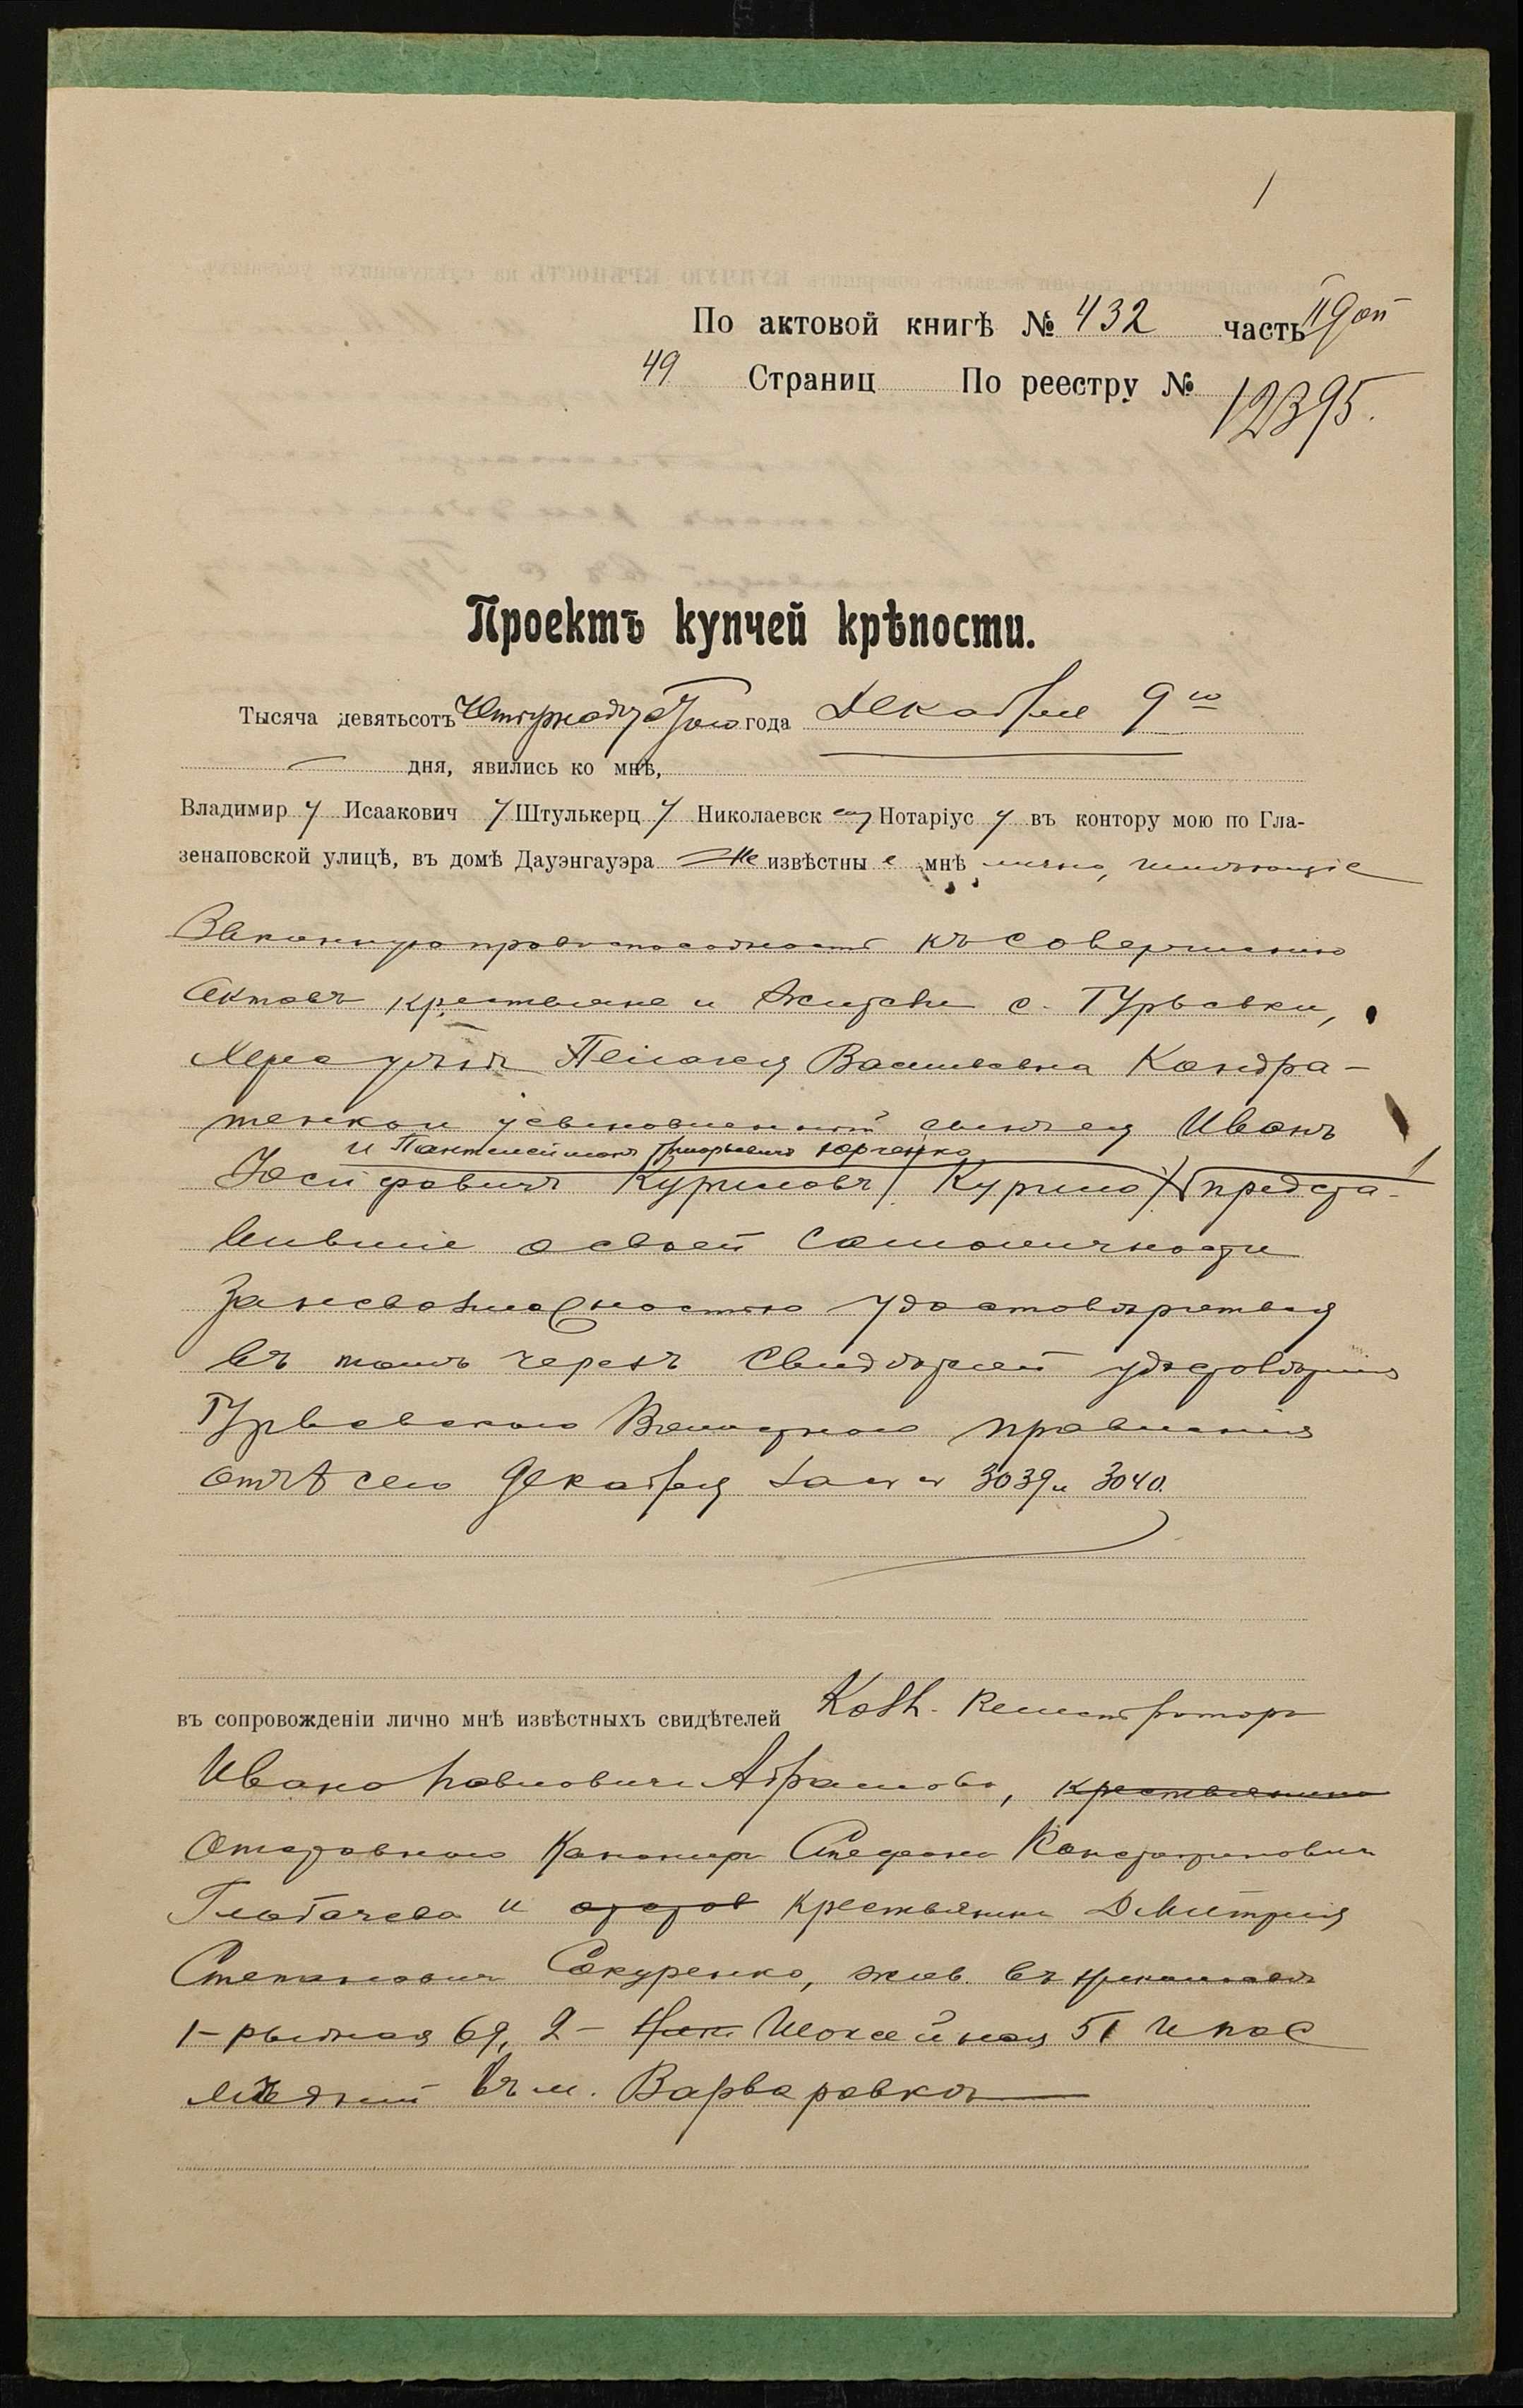 1
По актовой книгѣ № 432 часть II
49 Страниц По реестру № 12395.
Проектъ купчей крѣпости.
Тысяча девятьсотъ Четырнадцатого года Декабря 9го
дня, явились ко мнѣ,
Владимир у Исаакович у Штулькерц у Николаевск ому Нотаріус у въ контору мою по Гла-
зенаповской улицѣ, въ домѣ Дауэнгауэра Не извѣстны е мнѣ лично, имѣющіе
Законную правоспособность къ совершенію
Актовъ крестьяне и жители с. Гурьевки,
Пелагея Васильевна Кондра-
тенкои усыновленный сынъ ея Иванъ
и Пантелеймонъ Григорьевичъ Юрченко
Іосифовичъ Куриловъ (Курило) предста-
вившіе о своей самоличности
въ томъ через
Гурьевского Волостного правления
от сего Декабря за 3039 и 3040.
въ сопровожденіи лично мнѣ извѣстныхъ свидѣтелей Колл. Регистратора
Ивана Павловича Абрамова, крестьянина
Отставного Канонир Стефана Константинович
Глобачева и крестьянина Дмитрия
Степанович Сокуренко, жив. въ Николаевѣ
1- рыбная 69, 2- Ник. 51 и пос
лѣдній въ м. Варваровкѣ